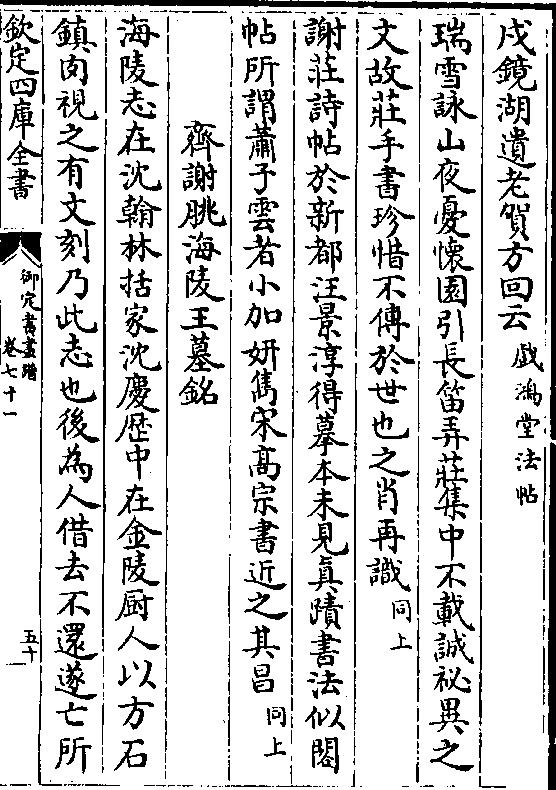 戍鏡湖遺老賀方回云戯鴻堂法帖
瑞雪詠山夜憂懷園引長笛弄莊集中不載誠祕異之
文故莊手書珍惜不傳於世也之肖再識同上
謝莊詩帖於新都汪景淳得摹本未見真蹟書法似閣
帖所謂蕭子雲者小加妍雋宋高宗書近之其昌同上
齊謝朓海陵王墓銘
海陵志在沈翰林括家沈慶歴中在金陵厨人以方石
鎮肉視之有文刻乃此志也後為人借去不還遂亡所
欽定四庫全書
御定書畫譜
卷七十一
五十